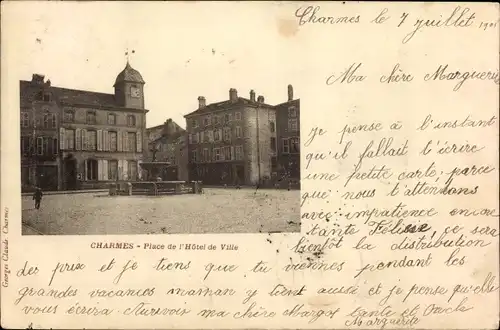 Charmes le 7 juillet
Ma chère Marguerite
je pense à l'instant
qu'il fallait t'écrire
une petite carte, parce
que nous t'attendons
avec impatience
tante Félisse, ce sera
bientôt la distribution
CHARMES - Place de l'Hôtel de Ville
des prix et je tiens que tu viennes pendant les
grandes vacances maman y tient aussi et je pense qu'elle
vous écrira Aurevoir ma chère Margot Tante et Oncle
Marguerite
Georges Claude Charmes